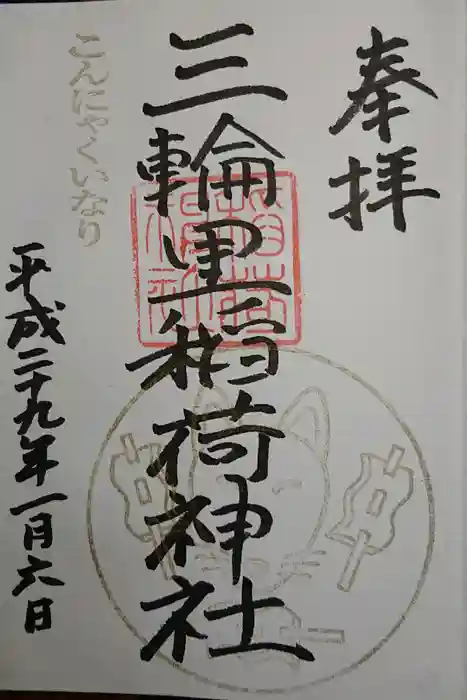 奉拝
三輪里稲荷神社
こんにゃくいなり
平成二十九年一月六日